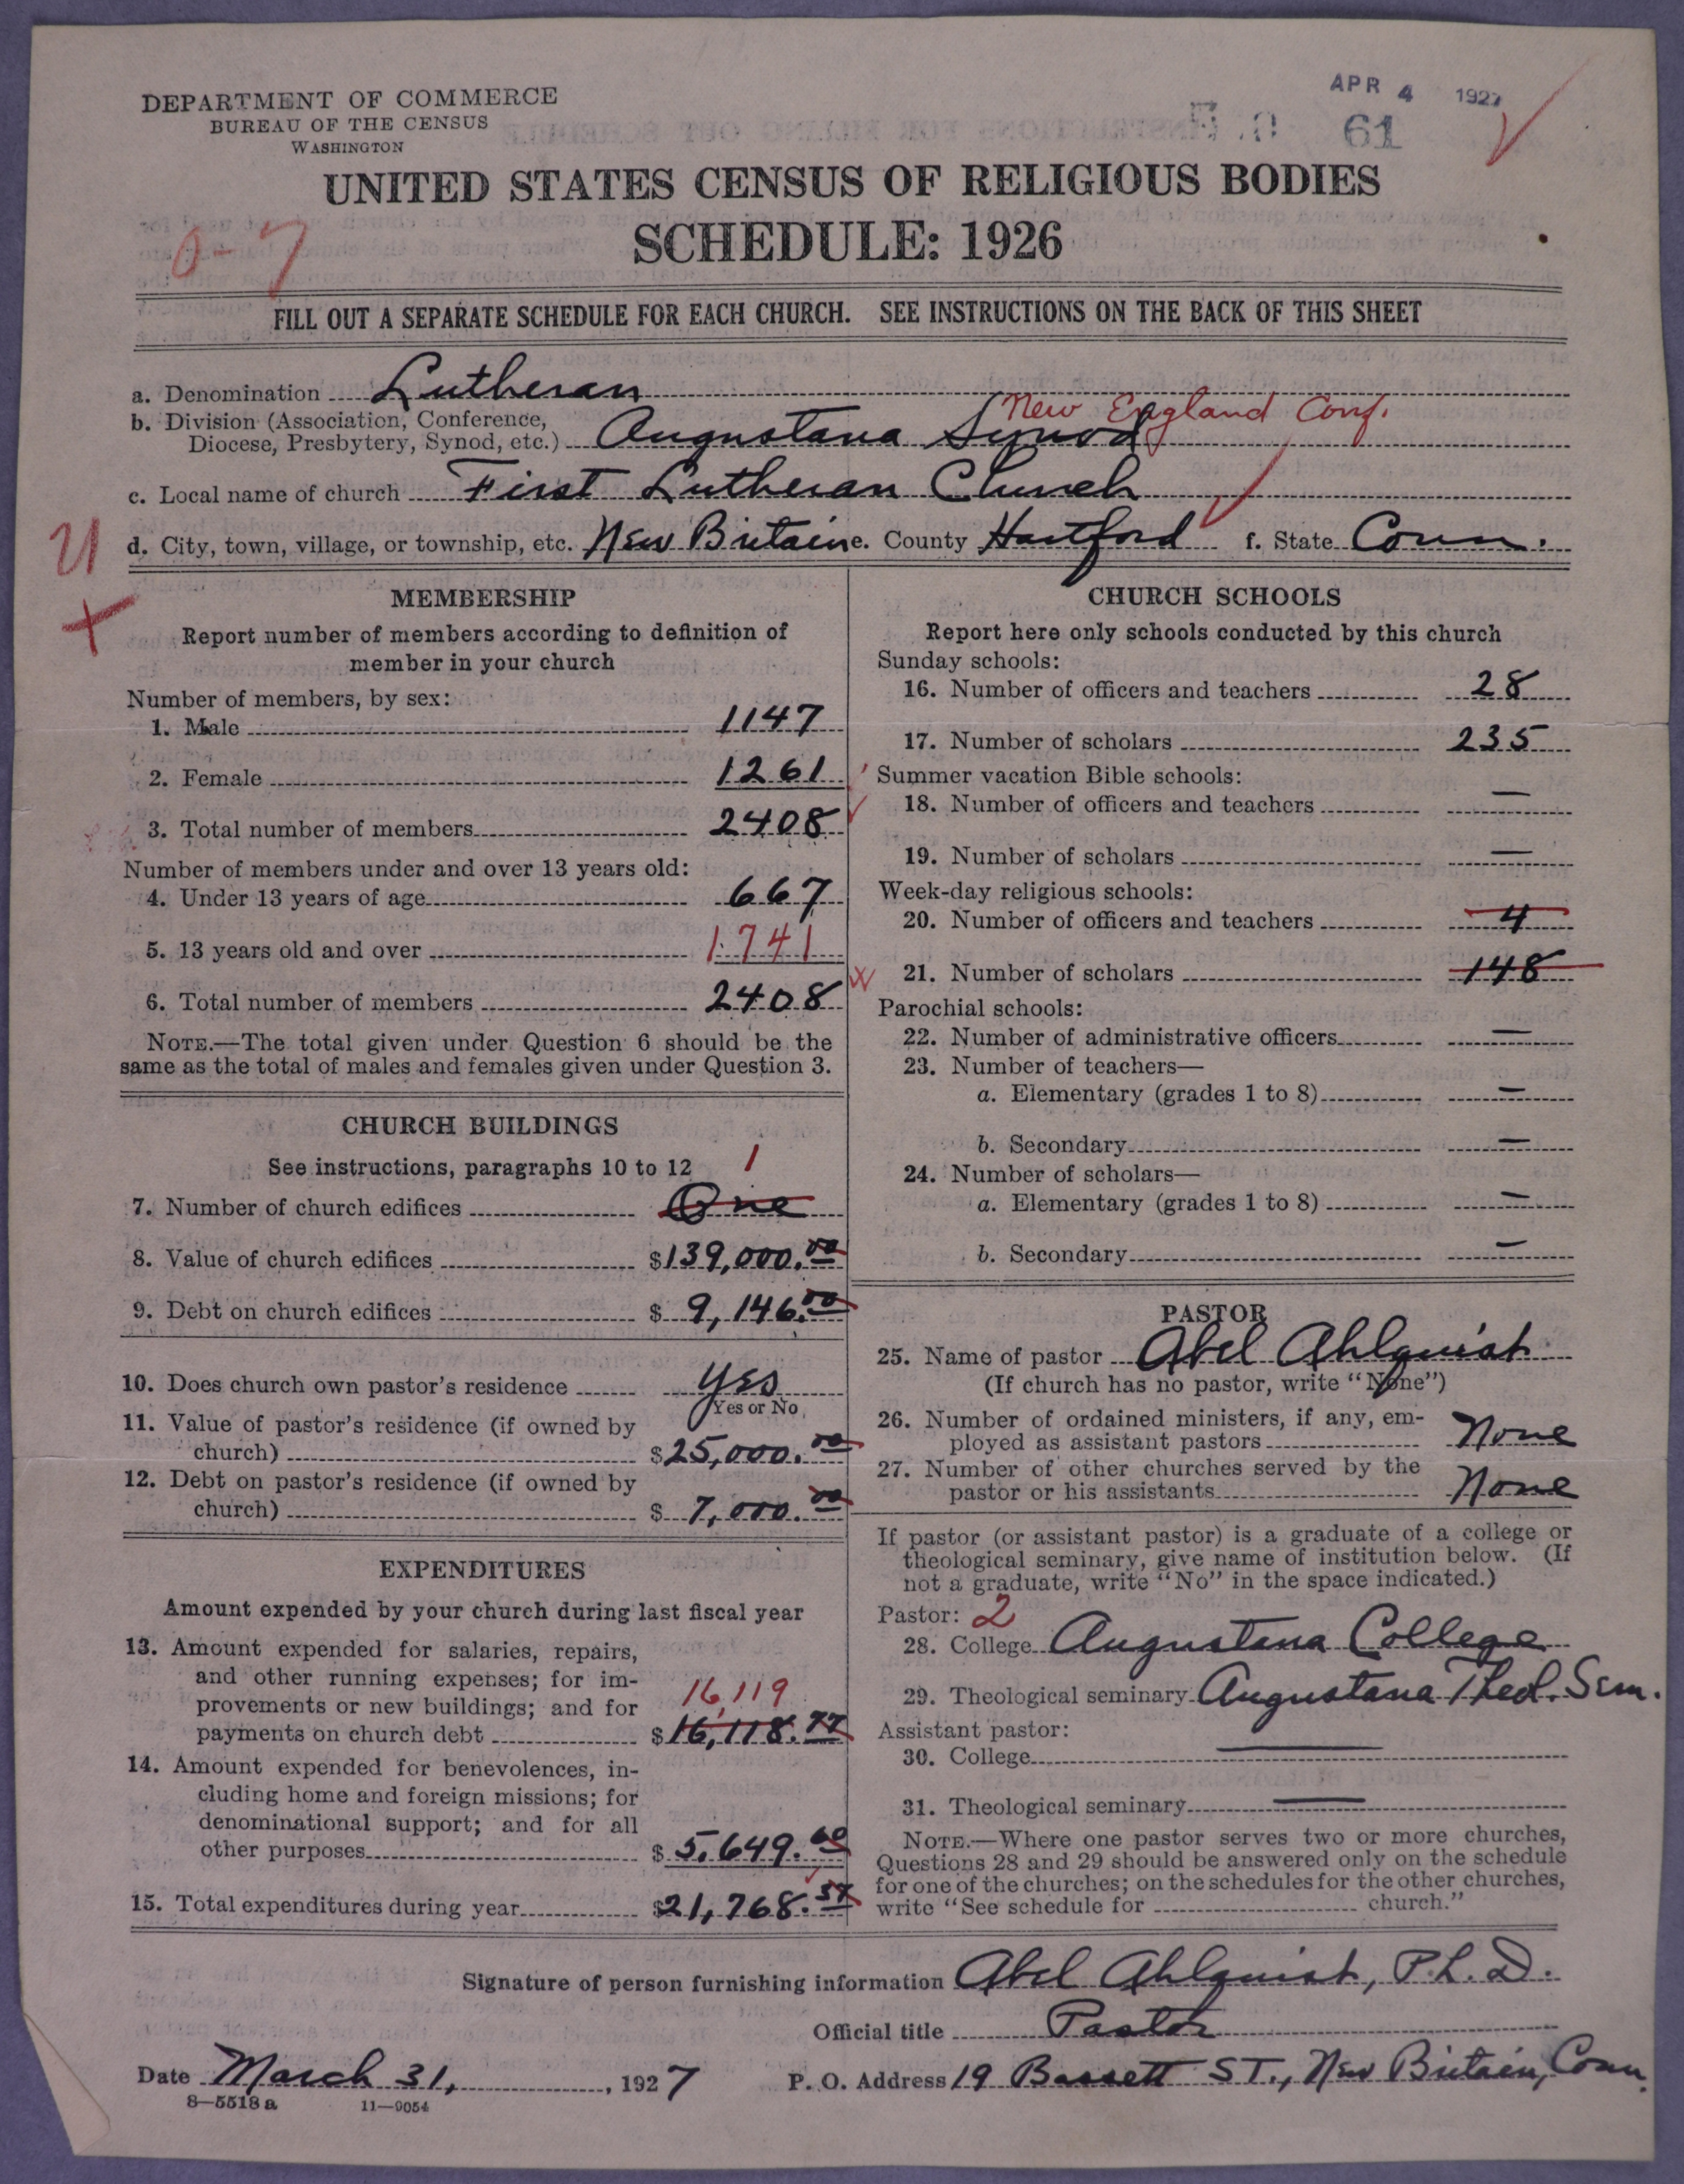 DEPARTMENT OF COMMERCE
BUREAU OF THE CENSUS
WASHINGTON
APR 4 1927
61
UNITED STATES CENSUS OF RELIGIOUS BODIES
0-7
SCHEDULE: 1926
FILL OUT A SEPARATE SCHEDULE FOR EACH CHURCH. SEE INSTRUCTIONS ON THE BACK OF THIS SHEET
a. Denomination Lutheran
New England Conf.
b. Division (Association, Conference,
Diocese, Presbytery, Synod, etc.) Augustana Synod
c. Local name of church First Lutheran Church
d. City, town, village, or township, etc. New Britain e. County Hartford f. State Conn.
MEMBERSHIP
Report number of members according to definition of
member in your church
Number of members, by sex:
1. Male 1147
2. Female 1261
3. Total number of members 2408
Number of members under and over 13 years old:
4. Under 13 years of age 667
5. 13 years old and over 1741
6. Total number of members 2408
NOTE.—The total given under Question 6 should be the
same as the total of males and females given under Question 3.
CHURCH BUILDINGS
See instructions, paragraphs 10 to 12
1
7. Number of church edifices One
8. Value of church edifices $139,000.00
9. Debt on church edifices $ 9,146.00
10. Does church own pastor's residence Yes
Yes or No
11. Value of pastor's residence (if owned by
church) $25,000.00
12. Debt on pastor's residence (if owned by
church) $ 7,000.00
EXPENDITURES
Amount expended by your church during last fiscal year
13. Amount expended for salaries, repairs,
and other running expenses; for im-
provements or new buildings; and for 16,119
payments on church debt $16,118.77
14. Amount expended for benevolences, in-
cluding home and foreign missions; for
denominational support; and for all
other purposes $ 5,649.60
15. Total expenditures during year $21,768.37
CHURCH SCHOOLS
Report here only schools conducted by this church
Sunday schools:
16. Number of officers and teachers 28
17. Number of scholars 235
Summer vacation Bible schools:
18. Number of officers and teachers —
19. Number of scholars —
Week-day religious schools:
20. Number of officers and teachers 4
21. Number of scholars 148
Parochial schools:
22. Number of administrative officers —
23. Number of teachers—
a. Elementary (grades 1 to 8) —
b. Secondary —
24. Number of scholars—
a. Elementary (grades 1 to 8) —
b. Secondary —
PASTOR
25. Name of pastor Abel Ahlquist
(If church has no pastor, write "None")
26. Number of ordained ministers, if any, em-
ployed as assistant pastors None
27. Number of other churches served by the
pastor or his assistants None
If pastor (or assistant pastor) is a graduate of a college or
theological seminary, give name of institution below. (If
not a graduate, write "No" in the space indicated.)
Pastor: 2
28. College Augustana College
29. Theological seminary Augustana Theol. Sem.
Assistant pastor:
30. College —
31. Theological seminary —
NOTE.—Where one pastor serves two or more churches,
Questions 28 and 29 should be answered only on the schedule
for one of the churches; on the schedules for the other churches,
write "See schedule for church."
Signature of person furnishing information Abel Ahlquist, Ph.D.
Official title Pastor
Date March 31, 1927
P. O. Address 19 Bassett St., New Britain, Conn.
8—5518 a 11—9054